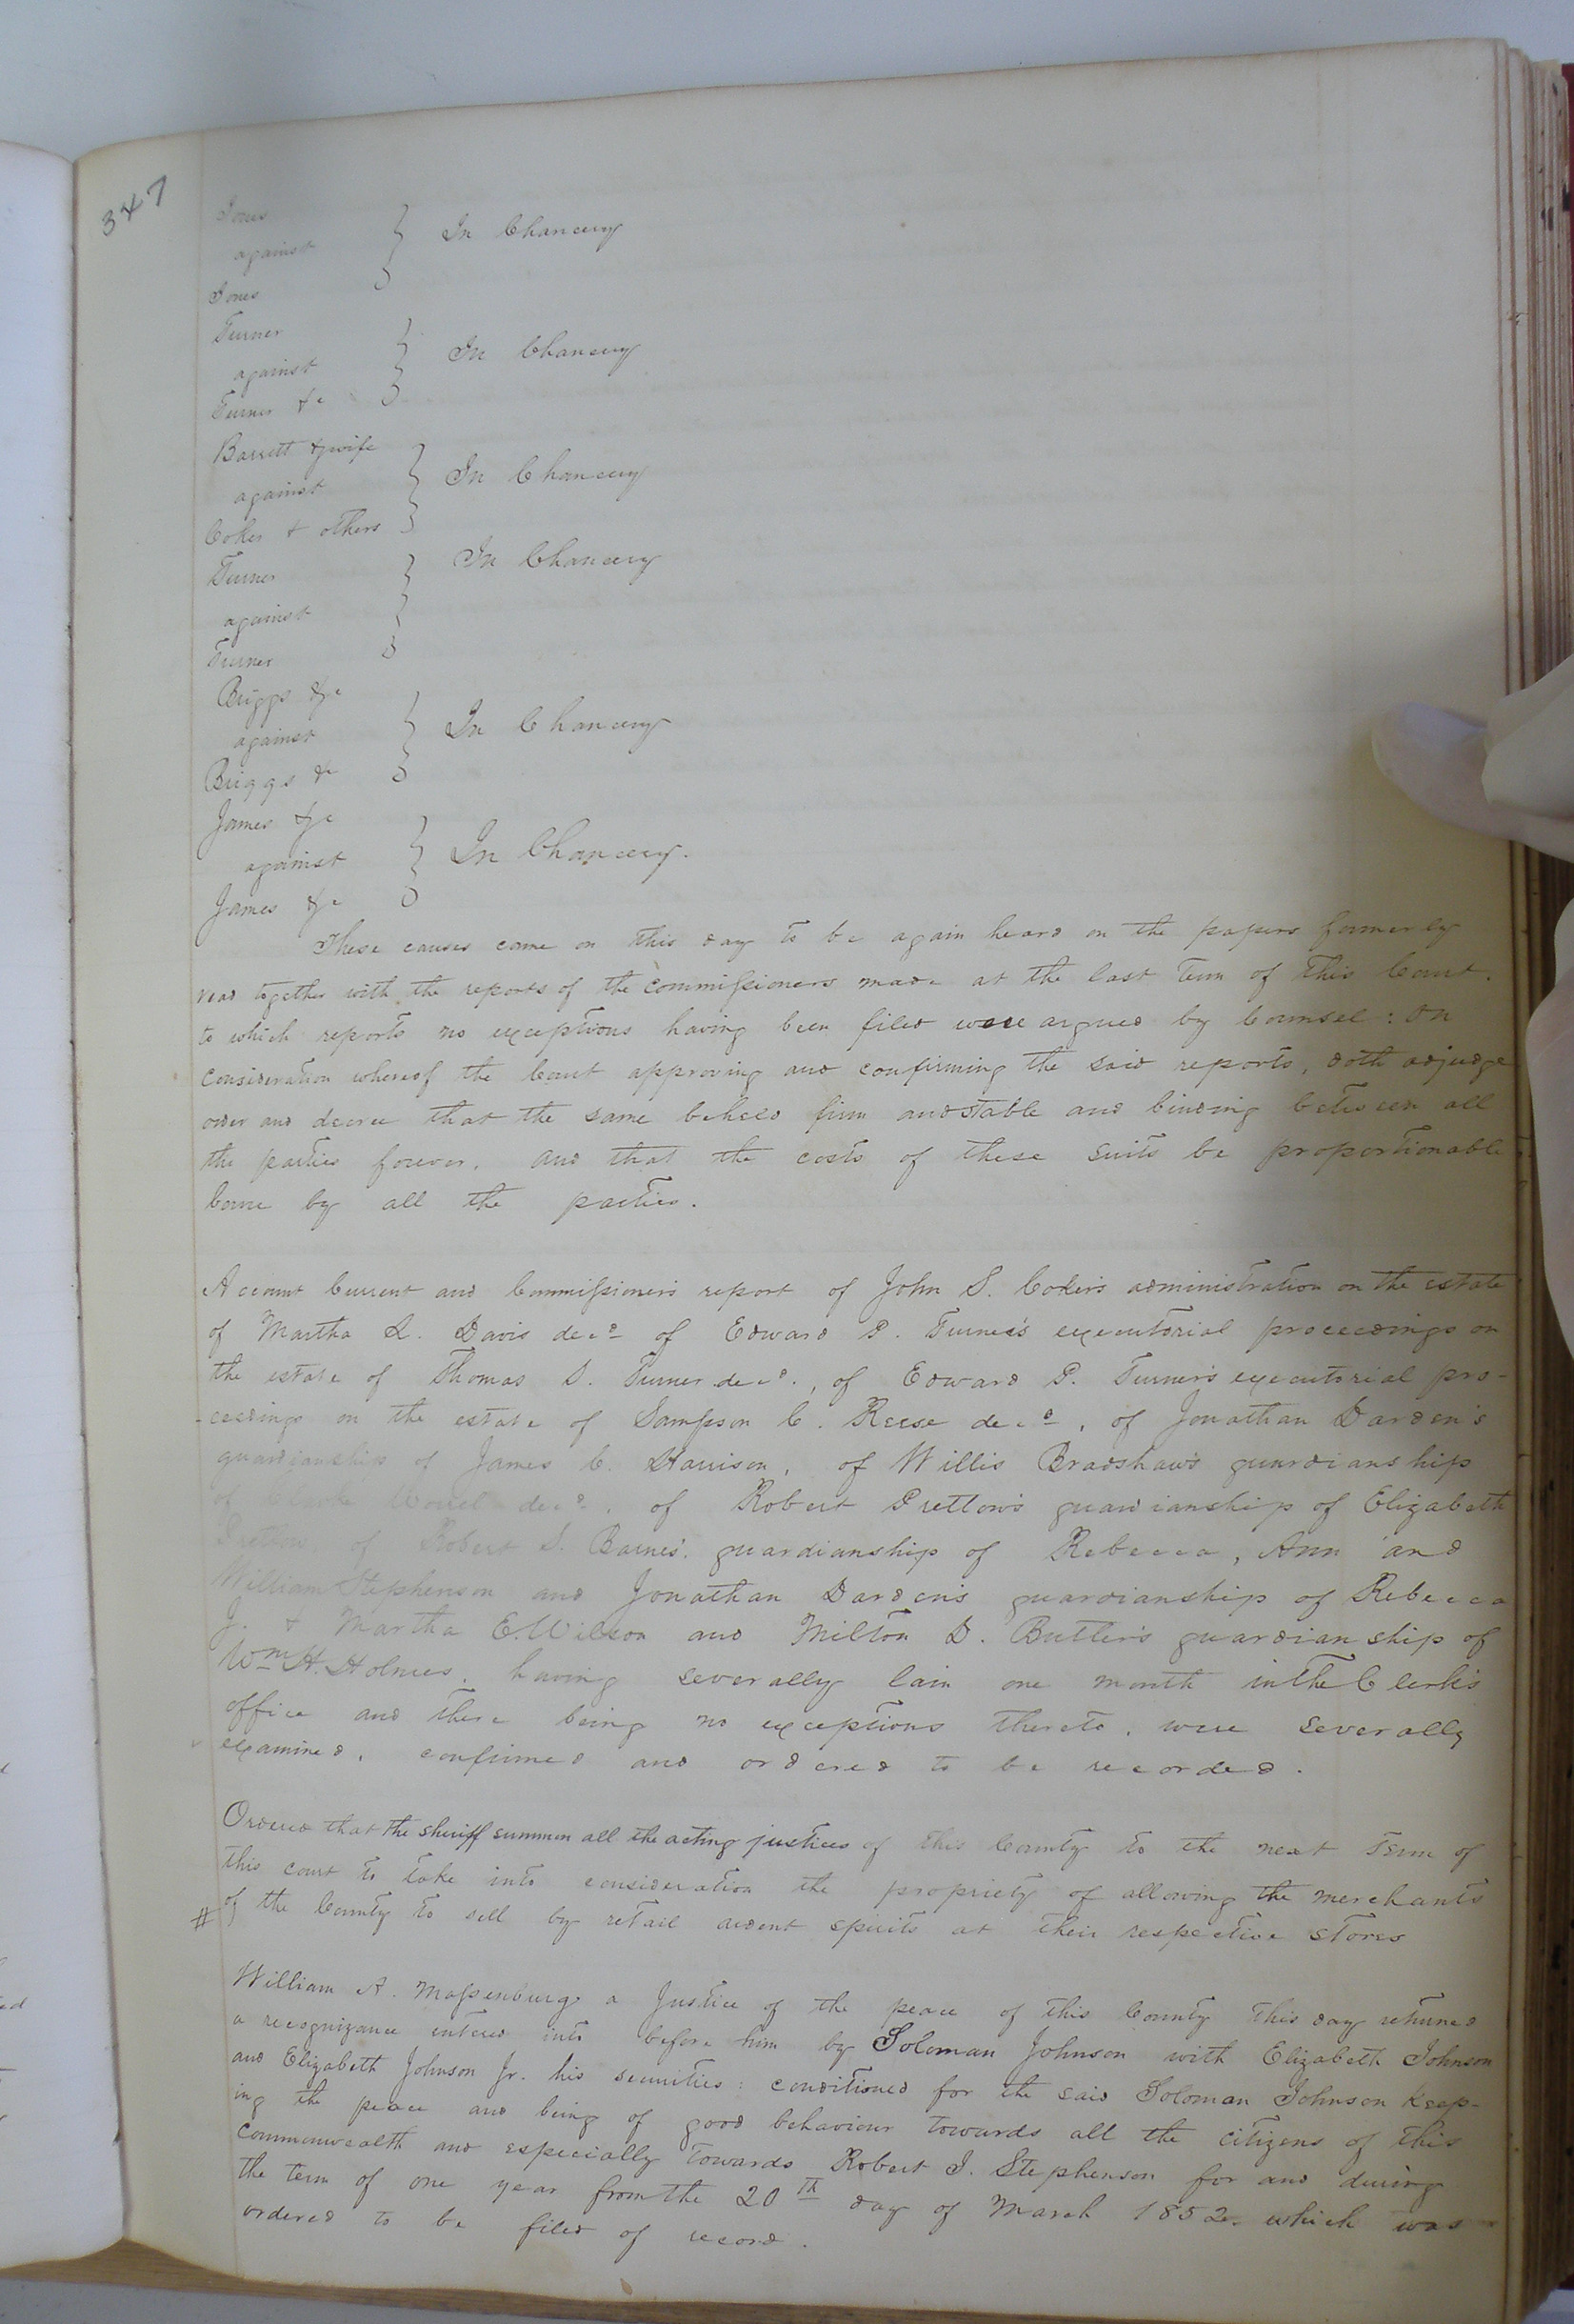 347
Jones
against } In Chancery
Jones
Turner
against } In Chancery
Turner &c
Barrett & wife
against } In Chancery
Coker & others
Turner
against } In Chancery
Turner
Briggs &c
against } In Chancery
Briggs &c
James &c
against } In Chancery.
James &c
These causes came on this day to be again heard on the papers formerly
read together with the reports of the commissioners made at the last term of this Court.
to which reports no exceptions having been filed were argued by Counsel: On
consideration whereof the Court approving and confirming the said reports, doth adjudge
order and decree that the same be held firm and stable and binding between all
the parties forever. and that the costs of these suits be proportionable
borne by all the parties.
Account Current and Commissioner's report of John S. Coker's administration on the estate
of Martha L. Davis decd of Edward P. Turner's executorial proceedings on
the estate of Thomas S. Turner decd., of Edward P. Turner's executorial pro-
-ceedings on the estate of Sampson C. Reese decd, of Jonathan Darden's
guardianship of James C. Harrison, of Willis Bradshaw's guardianship
of decd. of Robert Pretlow's guardianship of Elizabeth
Pretlow of Robert S. Barnes' guardianship of Rebecca, Ann and
William Stephenson and Jonathan Darden's guardianship of Rebecca
J. & Martha E. Wilson and Milton D. Butler's guardianship of
Wm H. Holmes. having severally lain one month in the Clerk's
office and there being no exceptions thereto, were severally
examined, confirmed and ordered to be recorded.
Ordered that the sheriff summon all the acting justices of this County to the next term of
this court to take into consideration the propriety of allowing the merchants
# of the County to sell by retail ardent spirits at their respective stores
William A. Massenburg a Justice of the peace of this County this day returned
a recognizance entered into before him by Soloman Johnson with Elizabeth Johnson
and Elizabeth Johnson Jr. his securities: conditioned for the said Soloman Johnson keep-
ing the peace and being of good behaviour towards all the citizens of this
Commonwealth and especially towards Robert J. Stephenson for and during
the term of one year from the 20th day of March 1852. which was
ordered to be filed of record.